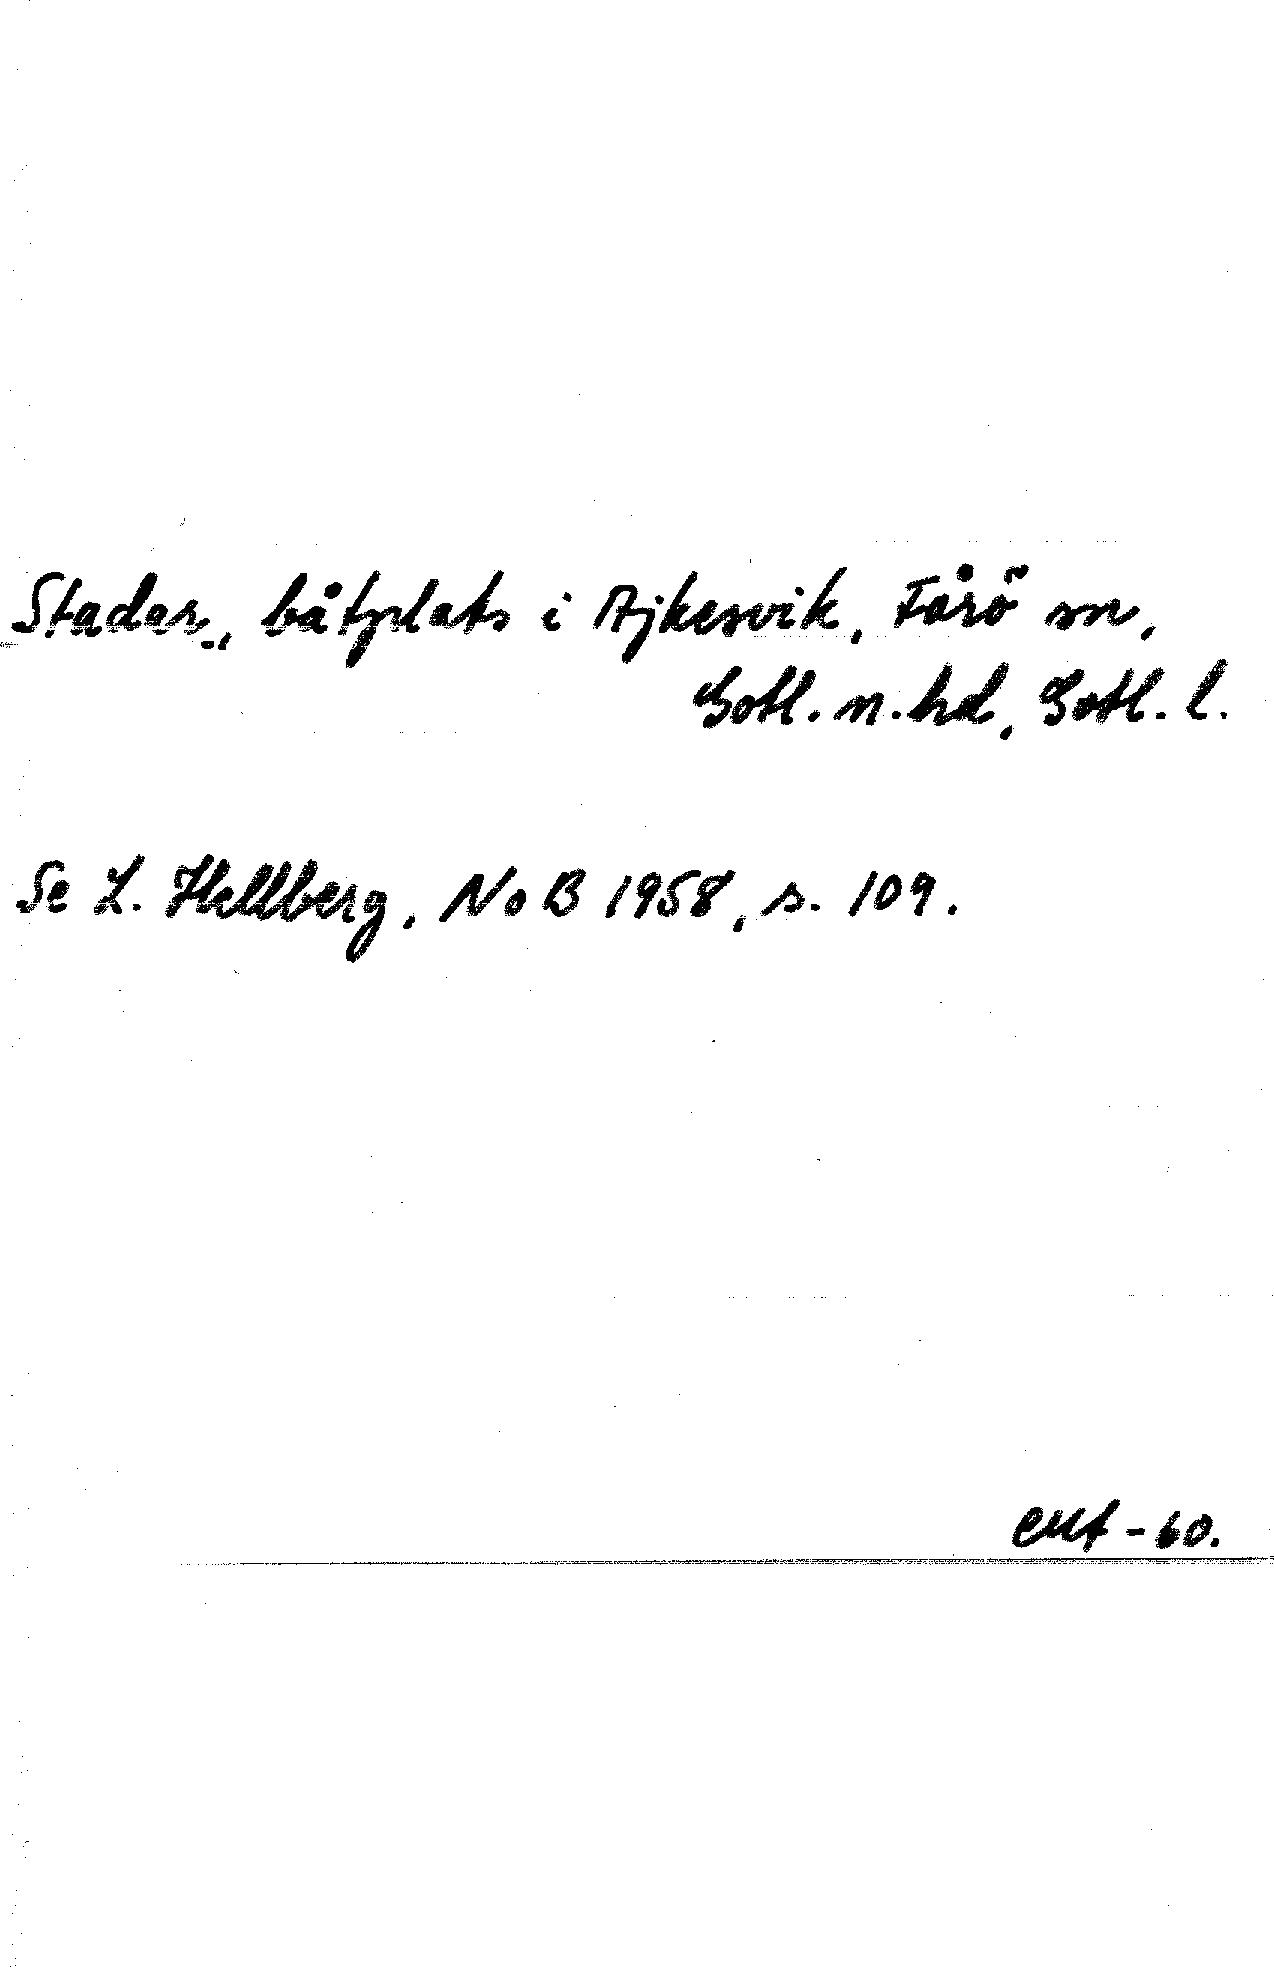 Stader, båtplats i Ajkesvik, Fårö sn,
Gotl. n. hd, Gotl. l.
Se L. Hellberg, NoB 1958, s. 109.
-60.